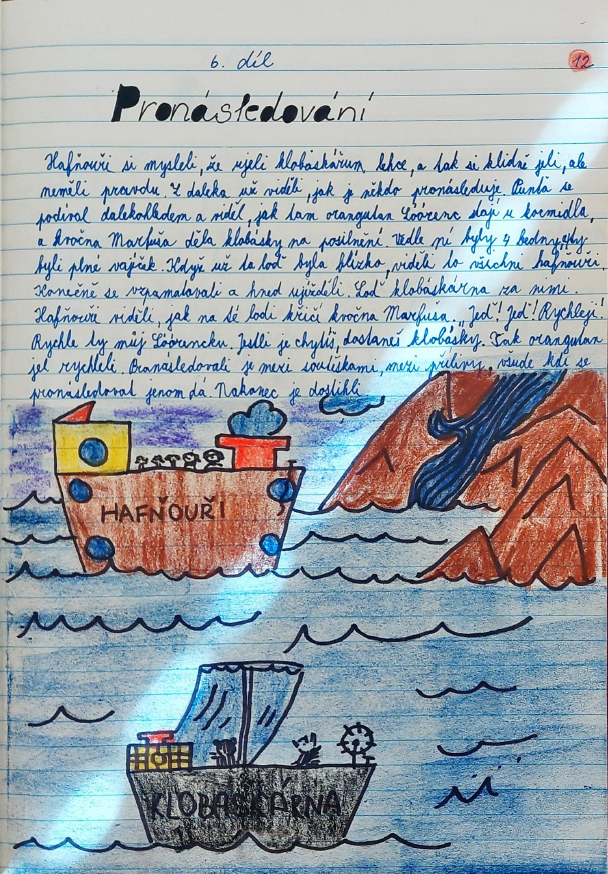 6. díl
12
Pronásledování
Hafňouři si mysleli, že ujeli klobáskárum lehce, a tak se klidně jeli, ale
neměli pravdu. Z daleka už viděli, jak je někdo pronásleduje. Punťa se
podíval dalekohledem a viděl, jak tam orangutan Lóórenc stojí u kormidla,
a kvočna Marfuša dělá klobásky na posilnění. Vedle ní byly 4 bedny,
byli plné vajíček. Když už ta loď byla blízko, viděli to všichni hafňouři.
Konečně se vzpamatovali a hned ujížděli. Loď klobáskárna za nimi.
Hafňouři viděli, jak na té lodi křičí kvočna Marfuša. „Jeď! Jeď! Rychleji!
Rychle ty můj Lóórencku. Jestli je chytíš, dostaneš klobásky. Tak orangutan
jel rychleli. Pronásledovali je mezi soutěskami, mezi přílivy, všude kde se
pronásledovat jenom dá. Nakonec je dostihli
HAFŇOUŘI
KLOBÁSKÁRNA